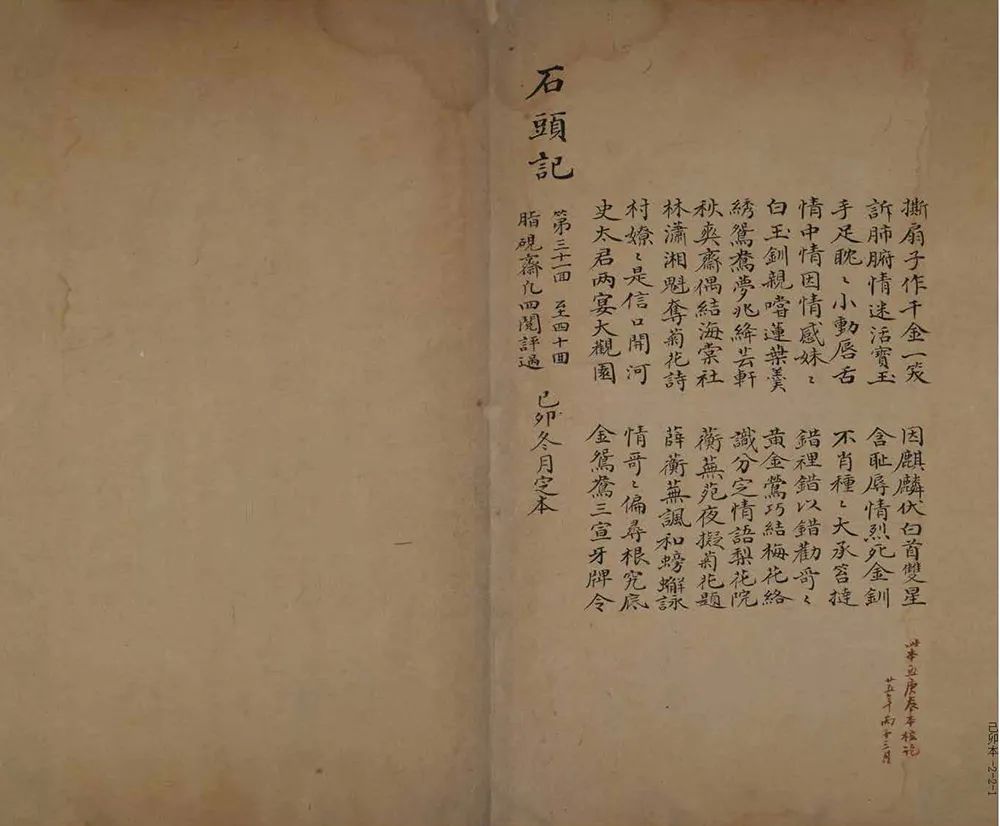 撕扇子作千金一笑 因麒麟伏白首雙星
訴肺腑情迷活寶玉 含耻辱情烈死金釧
手足眈〻小動唇舌 不肖種〻大承笞撻
情中情因情感妹〻 錯裡錯以錯勸哥〻
白玉釧親嚐蓮葉羹 黃金鶯巧結梅花絡
綉鴛鴦夢兆絳芸軒 識分定情語梨花院
秋爽齋偶結海棠社 蘅蕪苑夜擬菊花題
林瀟湘魁奪菊花詩 薛蘅蕪諷和螃蠏詠
村嫽〻是信口開河 情哥〻偏尋根究底
史太君兩宴大觀園 金鴛鴦三宣牙牌令
此本照庚辰本校訖
廿五年丙子三月
石頭記
第三十一回 至四十回
脂硯齋凡四閱評過 己卯冬月定本
己卯本-2-2-1